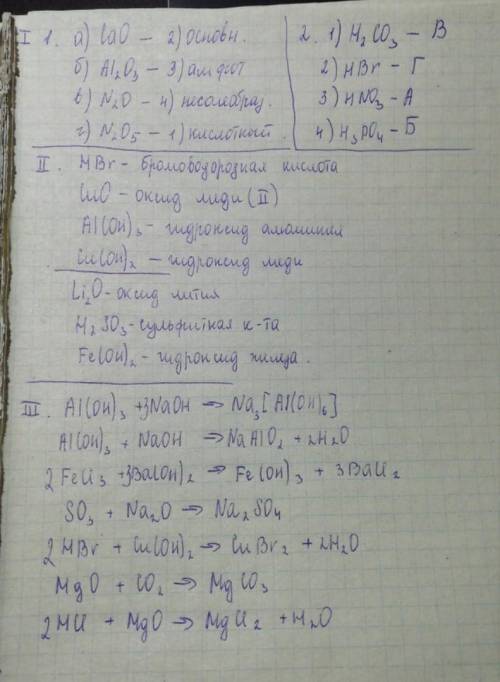 I 1. а) CaO – 2) основн.
б) Al₂O₃ – 3) амфот
в) N₂O – 4) несолеобраз.
г) N₂O₅ – 1) кислотный.
2. 1) H₂CO₃ – В
2) HBr – Г
3) HNO₃ – А
4) H₃PO₄ – Б
II. HBr – бромоводородная кислота
CuO – оксид меди (II)
Al(OH)₃ – гидроксид алюминия
Cu(OH)₂ – гидроксид меди
Li₂O – оксид лития
H₂SO₃ – сульфитная к-та
Fe(OH)₂ – гидроксид железа.
III. Al(OH)₃ + 3NaOH → Na₃[Al(OH)₆]
Al(OH)₃ + NaOH → NaAlO₂ + 2H₂O
2FeCl₃ + 3Ba(OH)₂ → Fe(OH)₃ + 3BaCl₂
SO₃ + Na₂O → Na₂SO₄
2HBr + Cu(OH)₂ → CuBr₂ + 2H₂O
MgO + CO₂ → MgCO₃
2HCl + MgO → MgCl₂ + H₂O